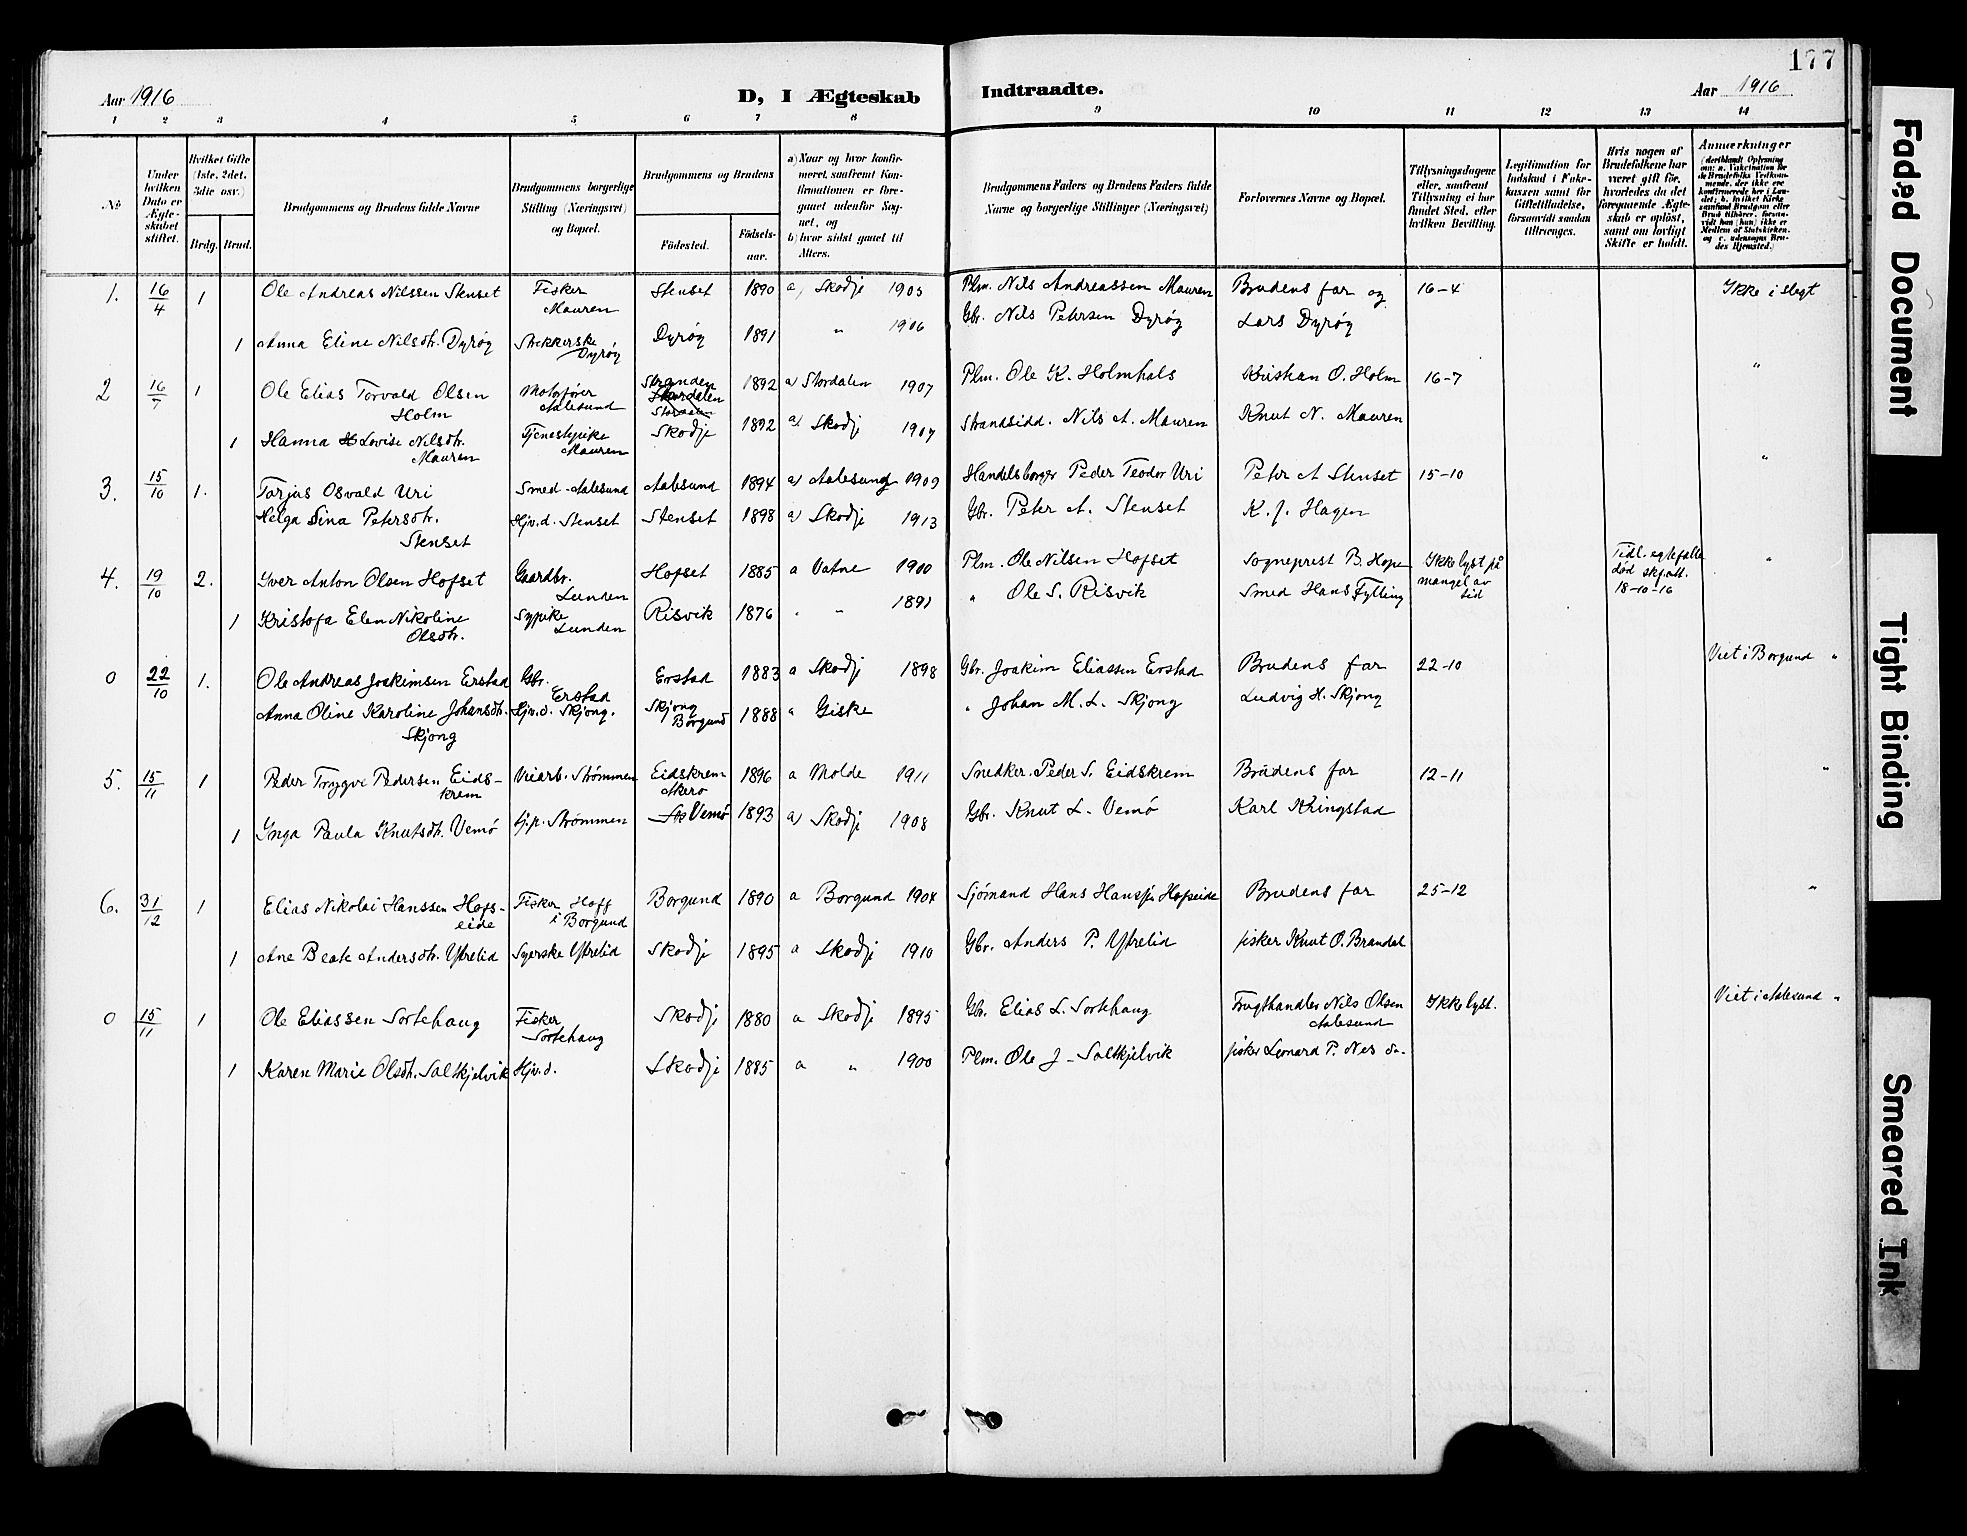 177
Aar 1916
D, I Ægteskab
Indtraadte.
Aar 1916
1 2 3 4 5 6 7 8 9 10 11 12 13 14
No
Under hvilken Dato er Ægteskabet stiftet.
Hvilket Gifte (1ste, 2det, 3die osv.)
Brdg. Brud.
Brudgommens og Brudens fulde Navne
Brudgommens borgerlige Stilling (Næringsvei) og Bopæl.
Brudgommens og Brudens
Födested.
Födsels-aar.
a) Naar og hvor konfirmeret, saafremt Konfirmationen er foregaaet udenfor Sognet, og
b) hvor sidst gaaet til Alters.
Brudgommens Faders og Brudens Faders fulde Navne og borgerlige Stillinger (Næringsvei)
Forlovernes Navne og Bopæl.
Tillysningsdagene eller, saafremt Tillysning ei har fundet Sted, efter hvilken Bevilling.
Legitimation for Indskud i Enkekassen samt for Giftetilladelse, forsaavidt saadan tiltrænges.
Hvis nogen af Brudefolkene har været gift för, hvorledes da det foregaaende Ægteskab er oplöst, samt om lovligt Skifte er holdt.
Anmærkninger
1. 16/4 1 Ole Andreas Nilssen Stenset Fisker Mauren Stenset 1890 a, Skodje 1905 Plm. Nils Andreassen Mauren Brudens far og 16-4 Ikke i slegt
1 Anna Eline Nilsdtr. Dyrøy Strikkerske Dyrøy Dyrøy 1891 " 1906 Gbr. Nils Petersen Dyrøy Lars Dyrøy
2 16/7 1 Ole Elias Torvald Olsen Holm Motorfører Aalesund Stranden Stordalen 1892 a) Stordalen 1907 Plm. Ole K. Holmhals Kristian O. Holm 16-7 "
1 Hanna Lovise Nilsdtr. Mauren Tjenestepike Mauren Skodje 1892 a) Skodje 1907 Strandsidd. Nils A. Mauren Knut N. Mauren
3. 15/10 1. Torjus Osvald Uri Smed Aalesund Aalesund 1894 a) Aalesund 1909 Handelsborger Peder Teodor Uri Peter A Stenset 15-10 "
Helga Sina Petersdtr. Stenset Hjv.d. Stenset Stenset 1898 a) Skodje 1913 Gbr. Peter A. Stenset K. J. Hagen
4. 19/10 2. Iver Anton Olsen Hofset Gaardbr. Lunden Hofset 1885 a Vatne 1900 Plm. Ole Nilsen Hofset Sogneprest B. Hope Ikke lyst på mangel av tid Tidl. egtefælle død skf.att. 18-10-16 "
1 Kristofa Elen Nikoline Olsdtr. Sypike Lunden Risvik 1876 " " 1891 " Ole S. Risvik Smed Hans Fylling
0 22/10 1. Ole Andreas Joakimsen Erstad Gbr. Erstad Erstad 1883 a Skodje 1898 Gbr. Joakim Eliassen Erstad Brudens far 22-10 Viet i Borgund "
Anna Oline Karoline Johansdtr. Skjong Hjv.d. Skjong. Skjong Borgund 1888 " Giske " Johan M. L. Skjong Ludvig H. Skjong
5. 15/11 1 Peder Trygve Pedersen Eidskrem Veiarb. Strømmen Eidskrem Akerø 1896 a Molde 1911 Snedker. Peder S. Eidskrem Brudens far 12-11 "
1 Inga Paula Knutsdtr. Vemö tj.p. Strømmen Vemö 1893 a) Skodje 1908 Gbr. Knut L. Vemö Karl Kringstad
6. 31/12 1 Elias Nikolai Hanssen Hofseide Fisker Hoff i Borgund Borgund 1890 a Borgund 1904 Sjømand Hans Hanssen Hofseide Brudens far 25-12 "
1 Ane Beate Andersdtr. Ytrelid Syerske Ytrelid Skodje 1895 a Skodje 1910 Gbr. Anders P. Ytrelid fisker Knut O. Brandal
0 15/11 1 Ole Eliassen Sortehaug Fisker Sortehaug Skodje 1880 a Skodje 1895 Gb. Elias L. Sortehaug Frugthandler Nils Olsen Aalesund Ikke lyst. Viet i Aalesund "
1 Karen Marie Olsdtr. Saltkjelvik Hjv.d. Skodje 1885 a " 1900 Plm. Ole J- Saltkjelvik fisker Leonard P. Nes
Faded Document
Tight Binding
Smeared Ink